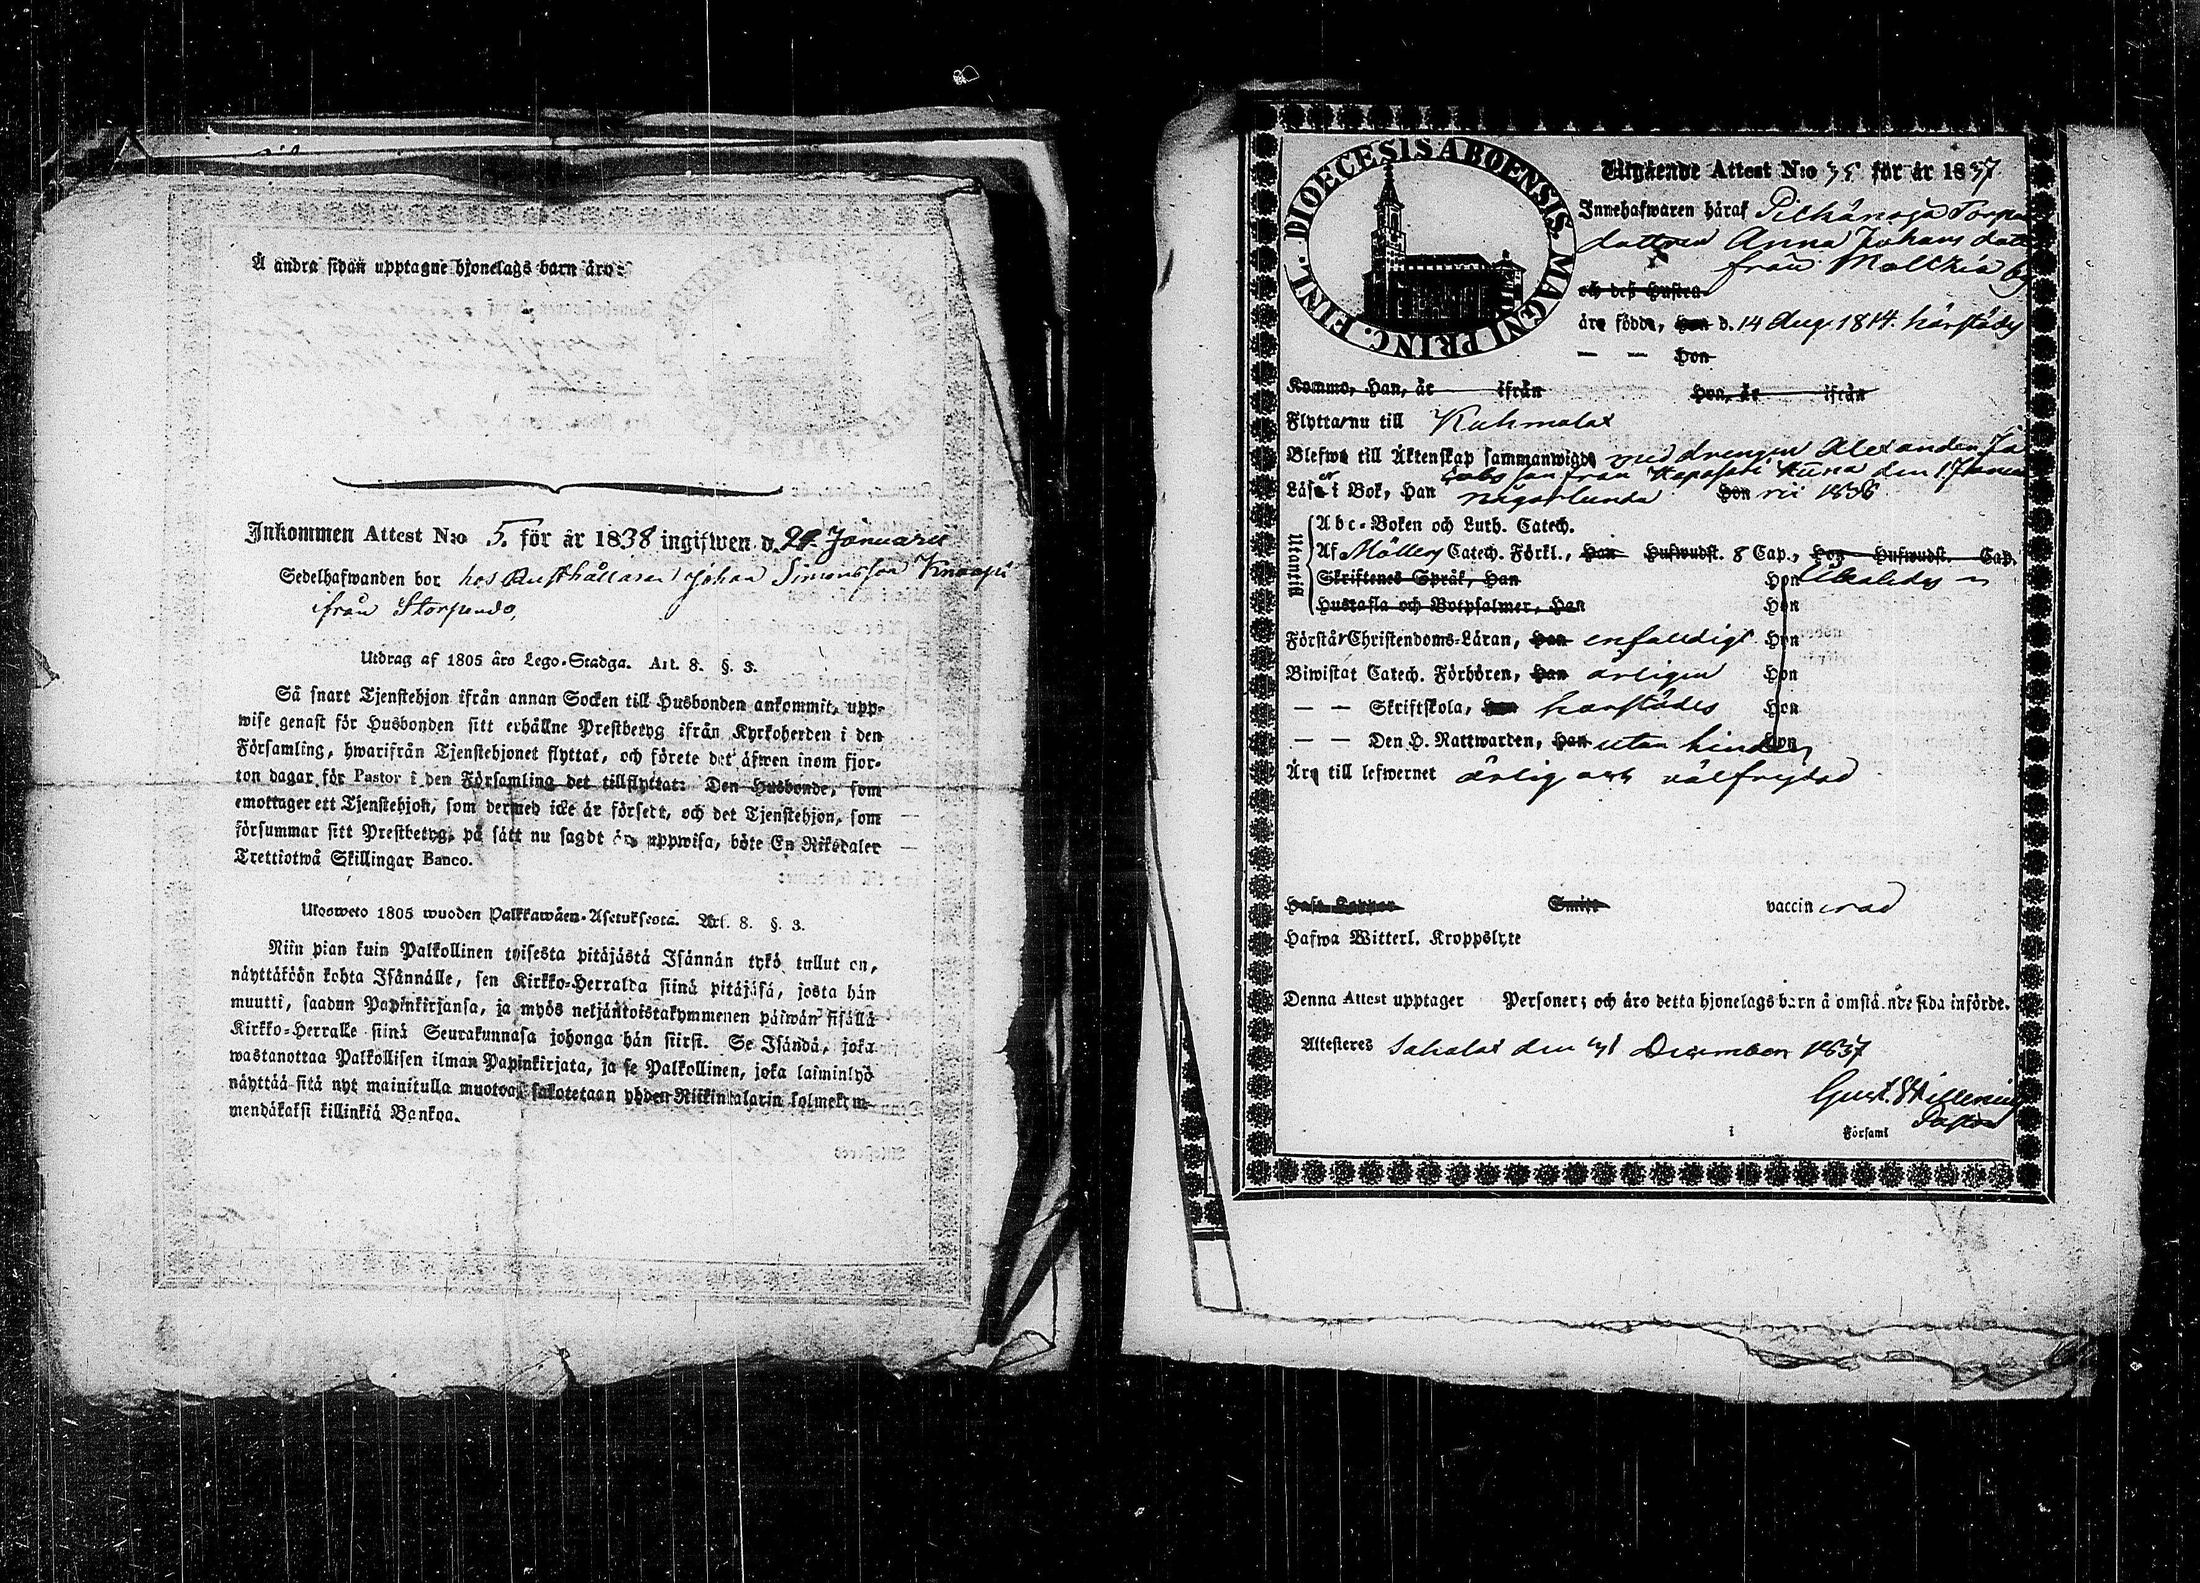 Å andra sidan upptagne hjonelags barn äro:
Inkommen Attest N:o 5. för år 1838 ingifwen d. Januarii
Sedelhafwanden bor hos Rusthållaren Johan Simonsson Knaapi
ifrån Storpundo,
Utdrag af 1805 års Lego-Stadga. Art. 8. §. 3.
Så snart Tjenstehjon ifrån annan Socken till Husbonden ankommit, upp-
wise genast för Husbonden sitt erhållne Prestbetyg ifrån Kyrkoherden i den
Församling, hwarifrån Tjenstehjonet flyttat, och förete det äfwen inom fjor-
ton dagar för Pastor i den Församling det tillflyttat: Den Husbonde, som
emottager ett Tjenstehjon, som dermed icke är försedt, och det Tjenstehjon, som
försummar sitt Prestbetyg, på sätt nu sagdt är, uppwisa, böte En Riksdaler
Trettiotwå Skillingar Banco.
Ulosweto 1805 wuoden Palkkawäen-Asetuksesta. Art. 8. §. 3.
Niin pian kuin Palkollinen toisesta pitäjästä Isännän tykö tullut on,
näyttäköön kohta Isännälle, sen Kirkko-Herralda siinä pitäjäsä, josta hän
muutti, saadun Papinkirjansa, ja myös neljäntoistakymmenen päiwän sisällä
Kirkko-Herralle siinä Seurakunnasa johonga hän siirsi. Se Isändä, joka
wastanottaa Palkollisen ilman Papinkirjata, ja se Palkollinen, joka laiminlyö
näyttää sitä nyt mainitulla muotoa, sakotetaan yhden Riikintalarin kolmekym-
mendäkaksi killinkiä Bankoa.
DIOECESIS ABOENSIS. MAGNI PRINC. FINL.
Utgående Attest N:o för år 1837
Innehafwaren häraf Torpare
dottren Anna Johans dotter
från by
och deß Hustru
äro födde, Han d. 14 Aug. 1814. härstädes
— — Hon
Kommo, Han, år ifrån Hon, år ifrån
Flyttar nu till Kuhmalax
Blefwo till Äktenskap sammanwigde med drengen Alexander Ja
cobsson från den 1 Janua
Läser i Bok, Han någorlunda Hon rii 1836
Utantill
Abc-Boken och Luth. Catech.
Af Möllers Catech. Förkl., Han Hufwudst. 8 Cap., Hon Hufwudst. Cap.
Skriftenes Språk, Han Hon
Hustafla och Botpsalmer, Han Hon
Förstår Christendoms-Läran, Han enfaldigt Hon
Biwistat Catech. Förhören, Han årligen Hon
— — Skriftskola, Han härstädes Hon
— — Den H. Nattwarden, Han utan hinder Hon
Äro till lefwernet ärlig och välfrejdad
Haft Koppor Smitt vaccinerad
Hafwa Witterl. Kroppslyte
Denna Attest upptager Personer; och äro detta hjonelags barn å omstående sida införde.
Attesteres Sahalax den 31 December 1837
Gust.
Pastor
i Församl